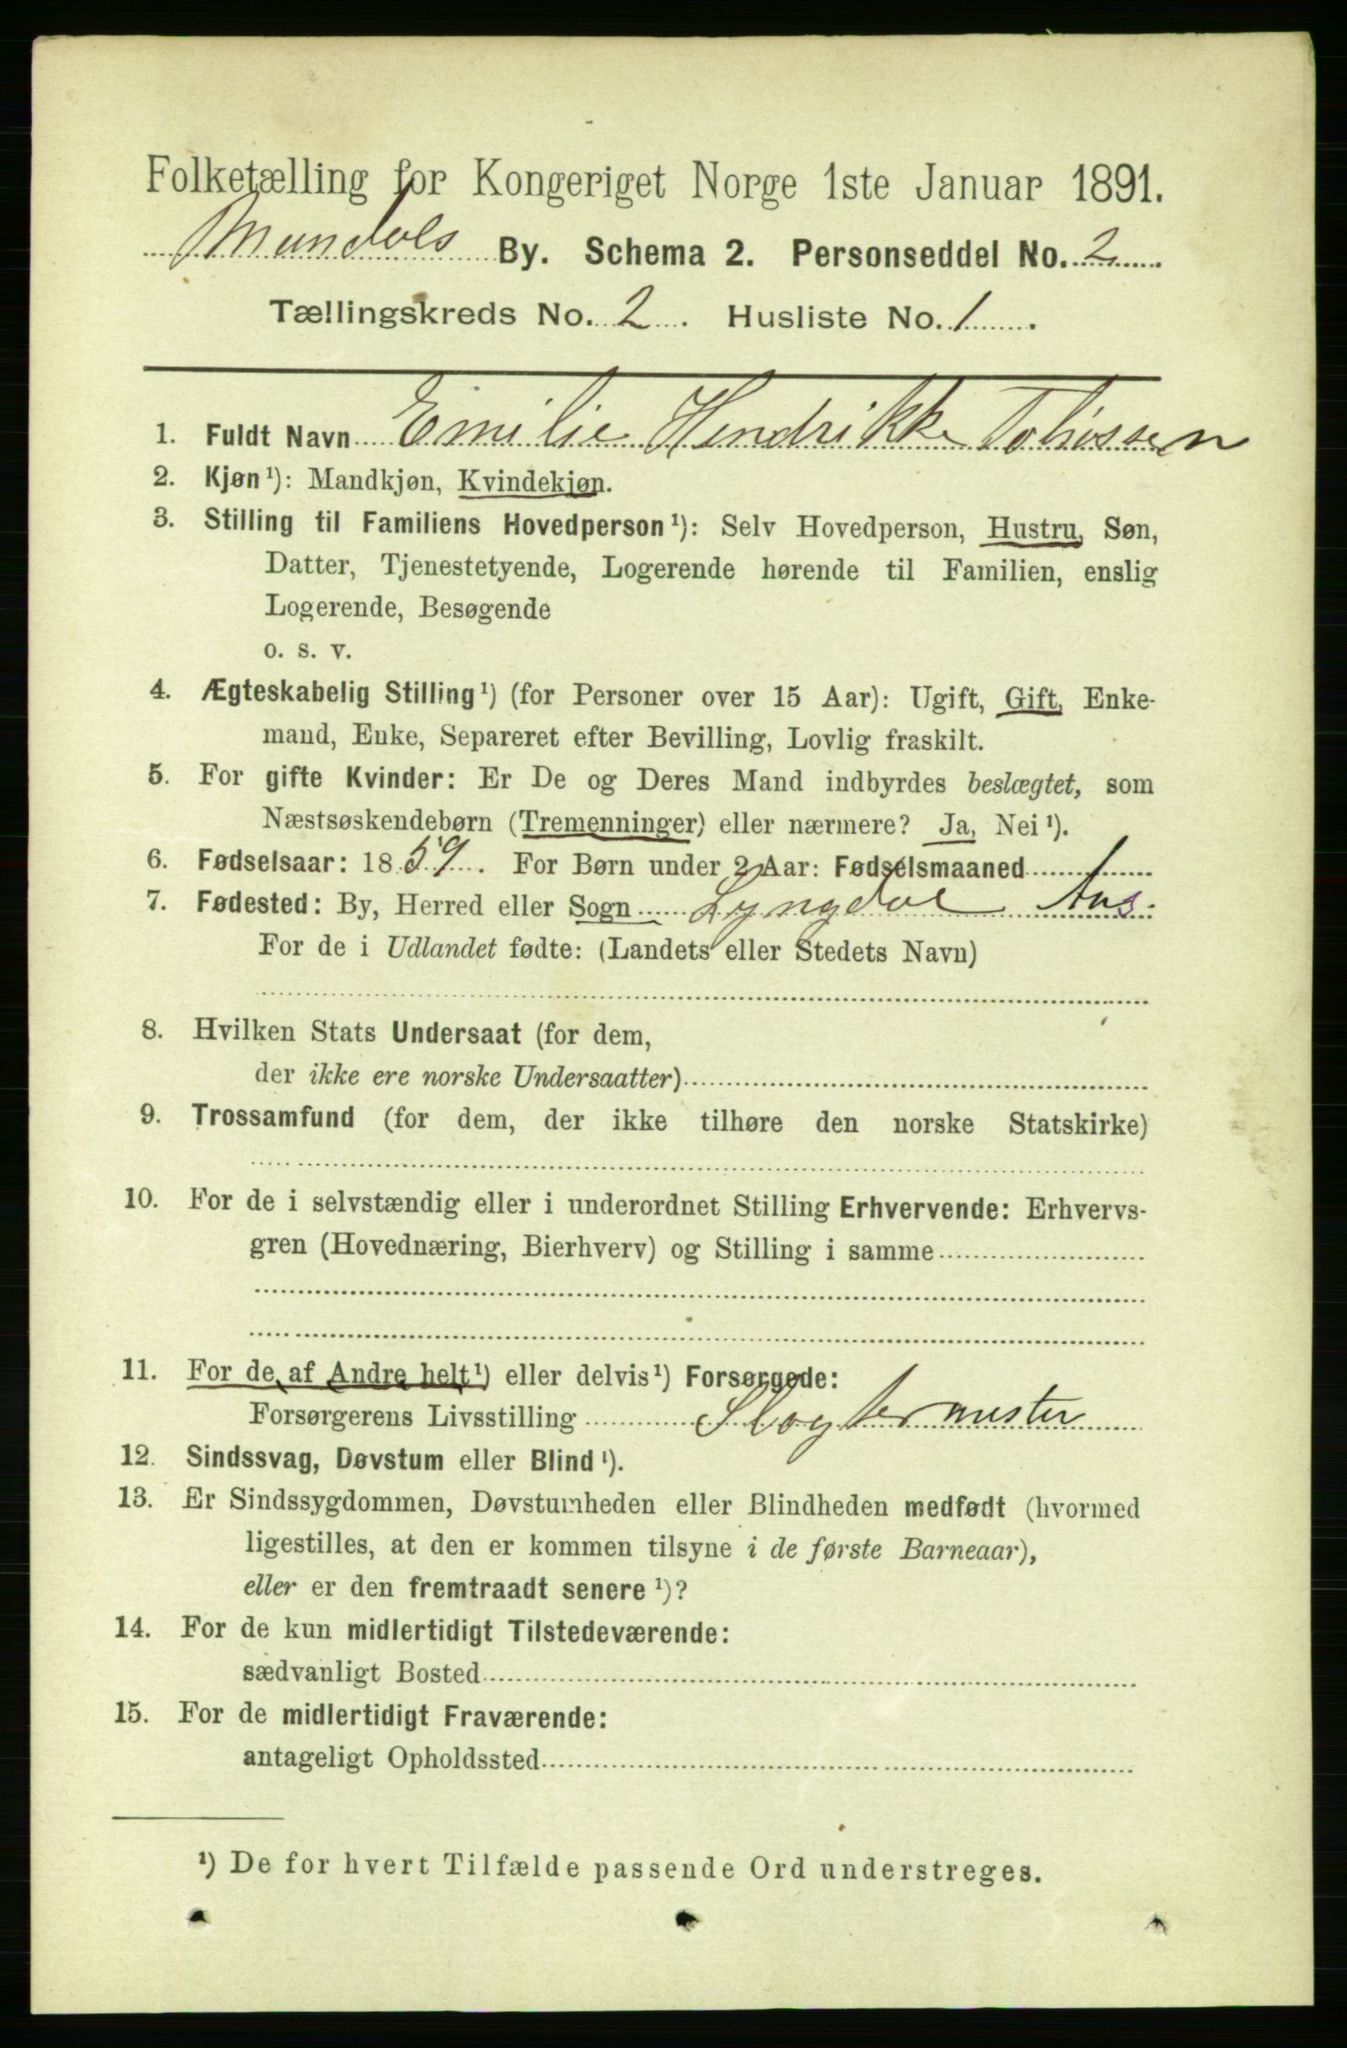 Folketælling for Kongeriget Norge 1ste Januar 1891.
Mandals By. Schema 2. Personseddel No. 2
Tællingskreds No. 2. Husliste No. 1.
1. Fuldt Navn Emilie Hendrikke Tobiassen
2. Kjøn¹): Mandkjøn, Kvindekjøn.
3. Stilling til Familiens Hovedperson¹): Selv Hovedperson, Hustru, Søn,
Datter, Tjenestetyende, Logerende hørende til Familien, enslig
Logerende, Besøgende
o. s. v.
4. Ægteskabelig Stilling¹) (for Personer over 15 Aar): Ugift, Gift, Enke-
mand, Enke, Separeret efter Bevilling, Lovlig fraskilt.
5. For gifte Kvinder: Er De og Deres Mand indbyrdes beslægtet, som
Næstsøskendebørn (Tremenninger) eller nærmere? Ja, Nei¹).
6. Fødselsaar: 1859. For Børn under 2 Aar: Fødselsmaaned
7. Fødested: By, Herred eller Sogn Lyngdal
For de i Udlandet fødte: (Landets eller Stedets Navn)
8. Hvilken Stats Undersaat (for dem,
der ikke ere norske Undersaatter)
9. Trossamfund (for dem, der ikke tilhøre den norske Statskirke)
10. For de i selvstændig eller i underordnet Stilling Erhvervende: Erhvervs-
gren (Hovednæring, Bierhverv) og Stilling i samme
11. For de af Andre helt¹) eller delvis¹) Forsørgede:
Forsørgerens Livsstilling Slagtermester
12. Sindssvag, Døvstum eller Blind¹).
13. Er Sindssygdommen, Døvstumheden eller Blindheden medfødt (hvormed
ligestilles, at den er kommen tilsyne i de første Barneaar),
eller er den fremtraadt senere¹)?
14. For de kun midlertidigt Tilstedeværende:
sædvanligt Bosted
15. For de midlertidigt Fraværende:
antageligt Opholdssted
¹) De for hvert Tilfælde passende Ord understreges.